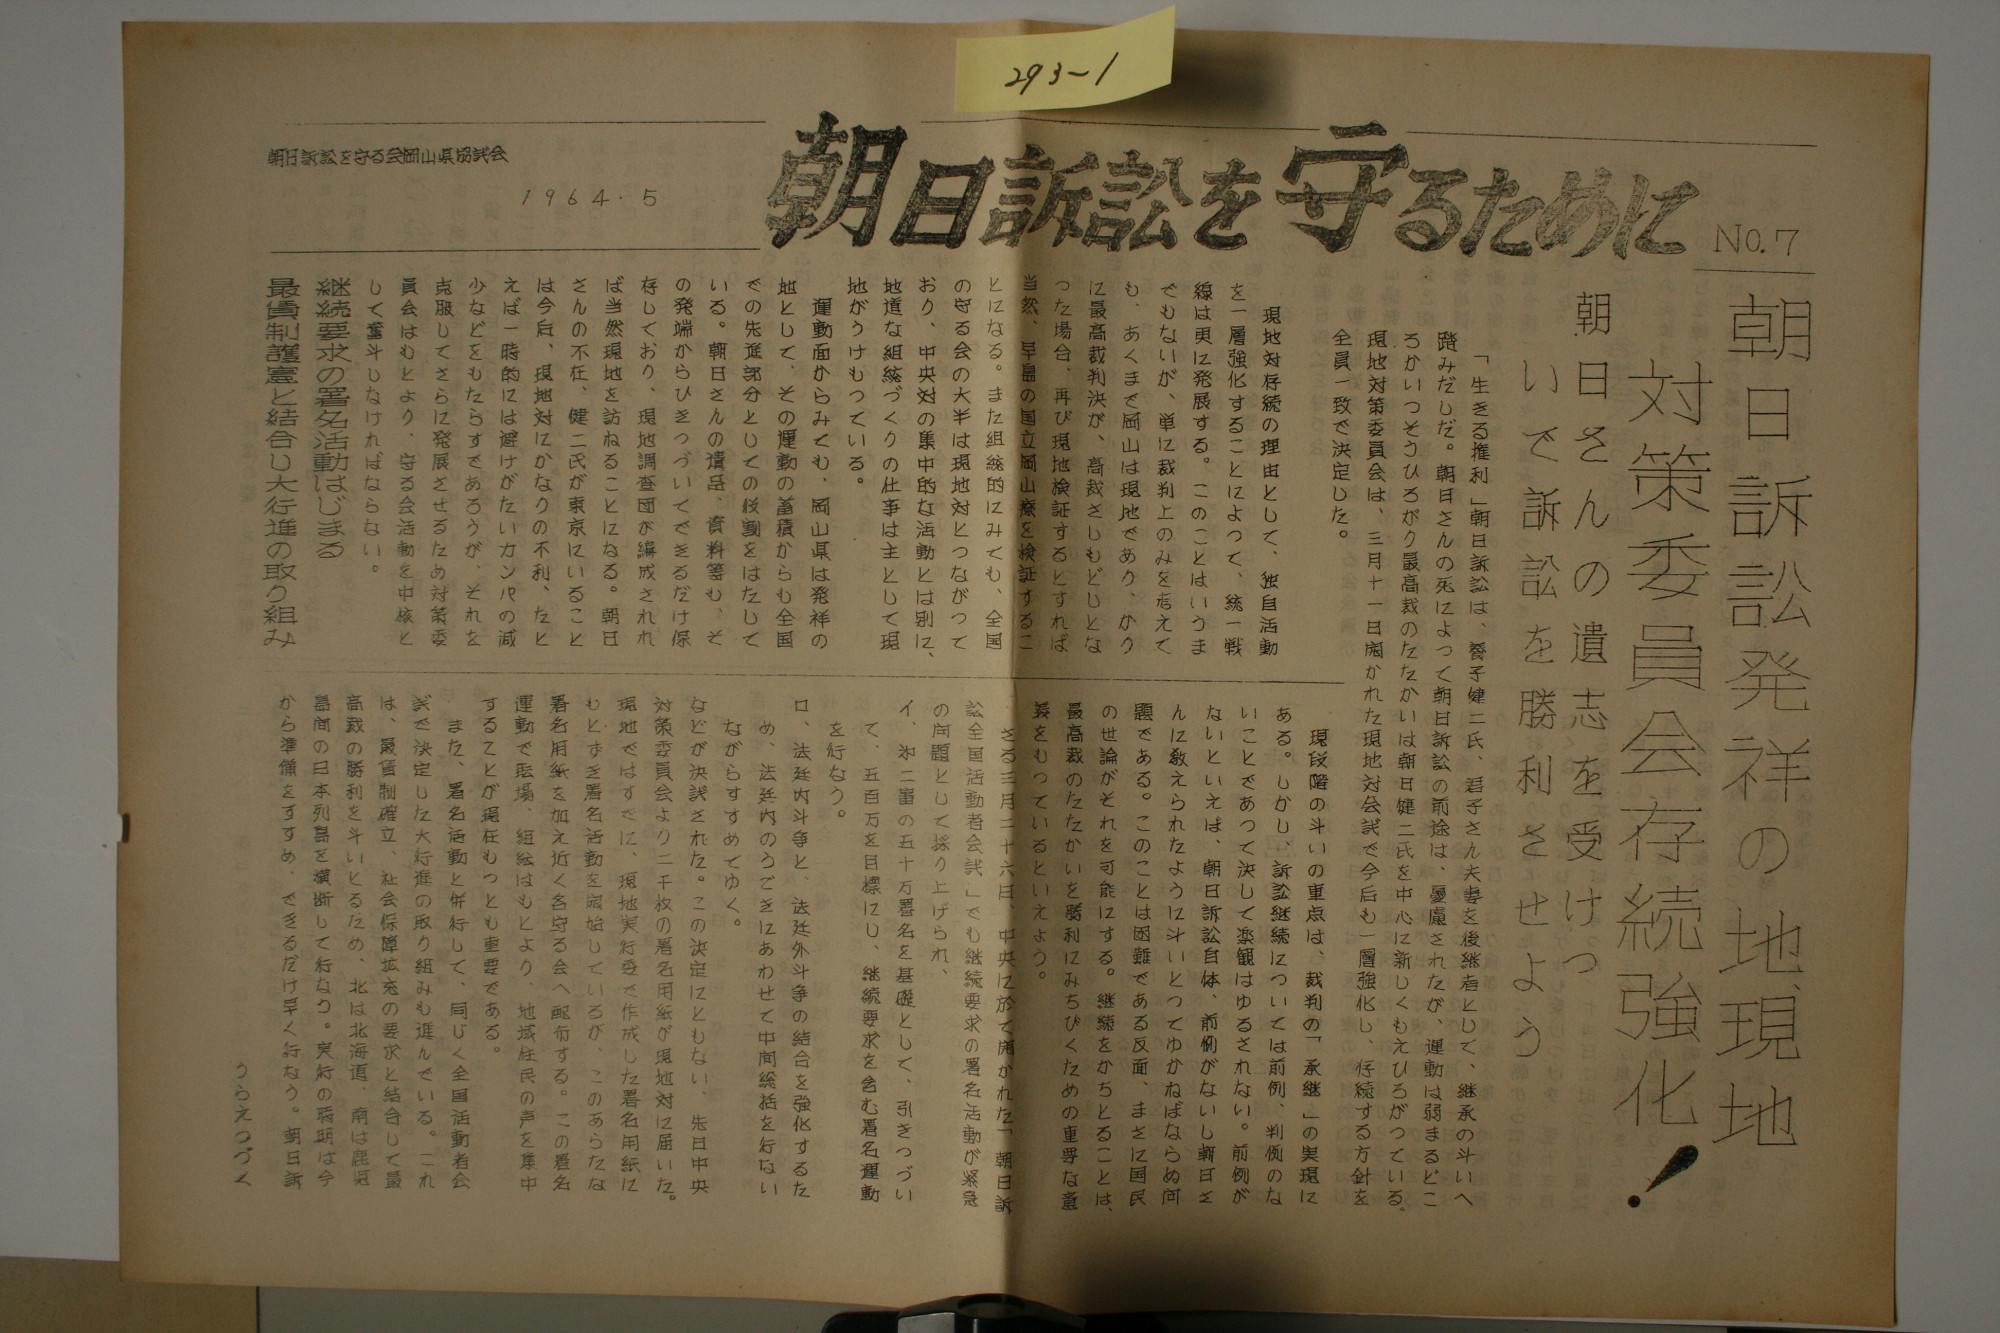 293-1
朝日訴訟を守るために
No.7
1964.5
朝日訴訟を守る会岡山県協議会
朝日訴訟発祥の地、現地
対策委員会存続強化!
朝日さんの遺志を受けつ
いで訴訟を勝利させよう
「生きる権利」朝日訴訟は、養子健二氏、君子さん夫妻を後継者として、継承の斗いへ
踏みだした。朝日さんの死によって朝日訴訟の前途は、憂慮されたが、運動は弱まるどこ
ろかいっそうひろがり最高裁のたたかいは朝日健二氏を中心に新しくもえひろがっている。
現地対策委員会は、三月十一日開かれた現地対会議で今后も一層強化し、存続する方針を
全員一致で決定した。
現地対存続の理由として、独自活動
を一層強化することによって、統一戦
線は更に発展する。このことはいうま
でもないが、単に裁判上のみを考えて
も、あくまで岡山は現地であり、かり
に最高裁判決が、高裁さしもどしとな
った場合、再び現地検証するとすれば
当然、早島の国立岡山療を検証するこ
とになる。また組織的にみても、全国
の守る会の大半は現地対とつながって
おり、中央対の集中的な活動とは別に、
地道な組織づくりの仕事は主として現
地がうけもっている。
運動面からみても、岡山県は発祥の
地として、その運動の蓄積からも全国
での先進部分としての役割をはたして
いる。朝日さんの遺品、資料等も、そ
の発端からひきつづいてできるだけ保
存しており、現地調査団が編成されれ
ば当然現地を訪ねることになる。朝日
さんの不在、健二氏が東京にいること
は今后、現地対にかなりの不利、たと
えば一時的には避けがたいカンパの減
少などをもたらすであろうが、それを
克服してさらに発展させるため対策委
員会はもとより、守る会活動を中核と
して奮斗しなければならない。
継続要求の署名活動はじまる
最賃制護憲と結合し大行進の取り組み
現段階の斗いの重点は、裁判の「承継」の実現に
ある。しかし、訴訟継続については前例、判例のな
いことであって決して楽観はゆるされない。前例が
ないといえば、朝日訴訟自体、前例がないし朝日さ
んに教えられたように斗いとってゆかねばならぬ問
題である。このことは困難である反面、まさに国民
の世論がそれを可能にする。継続をかちとることは、
最高裁のたたかいを勝利にみちびくための重要な意
義をもっているといえよう。
さる三月二十六日、中央に於て開かれた「朝日訴
訟全国活動者会議」でも継続要求の署名活動が緊急
の問題として採り上げられ、
イ、第二審の五十万署名を基礎として、引きつづい
て、五百万を目標にし、継続要求を含む署名運動
を行なう。
ロ、法廷内斗争と、法廷外斗争の結合を強化するた
め、法廷内のうごきにあわせて中間総括を行ない
ながらすすめてゆく。
などが決議された。この決定にともない、先日中央
対策委員会より二千枚の署名用紙が現地対に届いた。
現地ではすでに、現地実行委で作成した署名用紙に
もとずき署名活動を開始しているが、このあらたな
署名用紙を加え近く各守る会へ配布する。この署名
運動で職場、組織はもとより、地域住民の声を集中
することが現在もっとも重要である。
また、署名活動と併行して、同じく全国活動者会
議で決定した大行進の取り組みも進んでいる。これ
は、最賃制確立、社会保障拡充の要求と結合して最
高裁の勝利を斗いとるため、北は北海道、南は鹿児
島間の日本列島を横断して行なう。実行の時期は今
から準備をすすめ、できるだけ早く行なう。朝日訴
うらえつづく